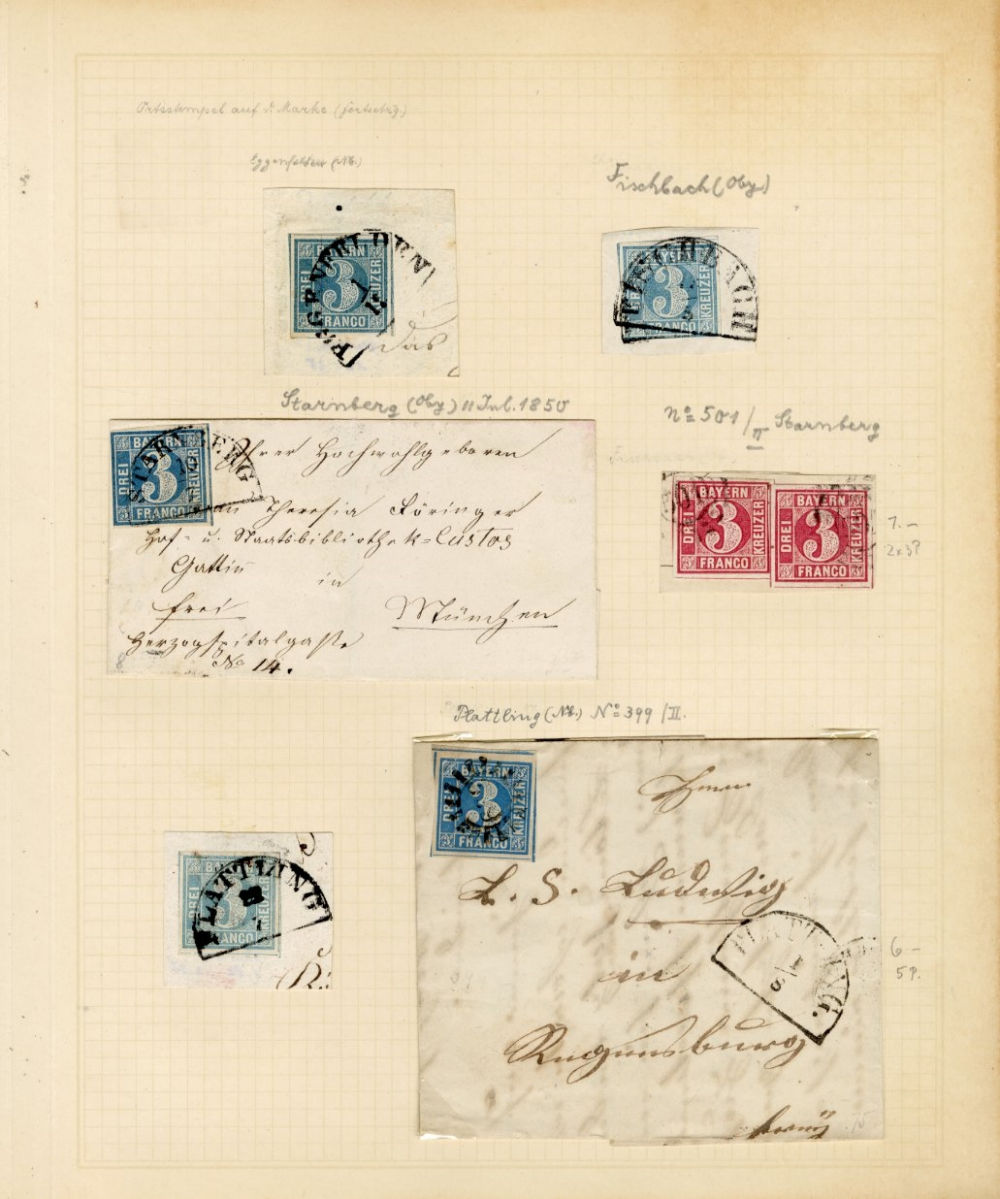 Ortsstempel auf d. Marke (Fortsetzg.)
Eggenfelden (Nb.)
Fischbach (Oby)
EGGENFELDEN
1
12
BAYERN
DREI
3
KREUZER
FRANCO
Das
FISCHBACH
BAYERN
DREI
3
KREUZER
FRANCO
Starnberg (Oby) 11 Jul. 1850
No 501 / II Starnberg
STARNBERG
BAYERN
DREI
3
KREUZER
FRANCO
Ihrer Hochwohlgeboren
Frau Theresia Föringer
Hof- u. Staatsbibliothek-Custos
Gattin in
frei München
Herzogspitalgasse
No 14.
8
501
BAYERN
DREI
3
KREUZER
FRANCO
BAYERN
DREI
3
KREUZER
FRANCO
1.-
2x3P
Plattling (Nb.) No 399 / II.
BAYERN
DREI
3
KREUZER
FRANCO
Herrn
L. S. Ludwig
in
Regensburg
PLATTLING.
6-
5P.
PLATTLING
BAYERN
DREI
KREUZER
FRANCO